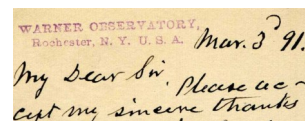 WARNER OBSERVATORY,
Rochester, N. Y. U. S. A. Mar. 3ᵈ 91.
My Dear Sir. Please ac-
cept my sincere thanks